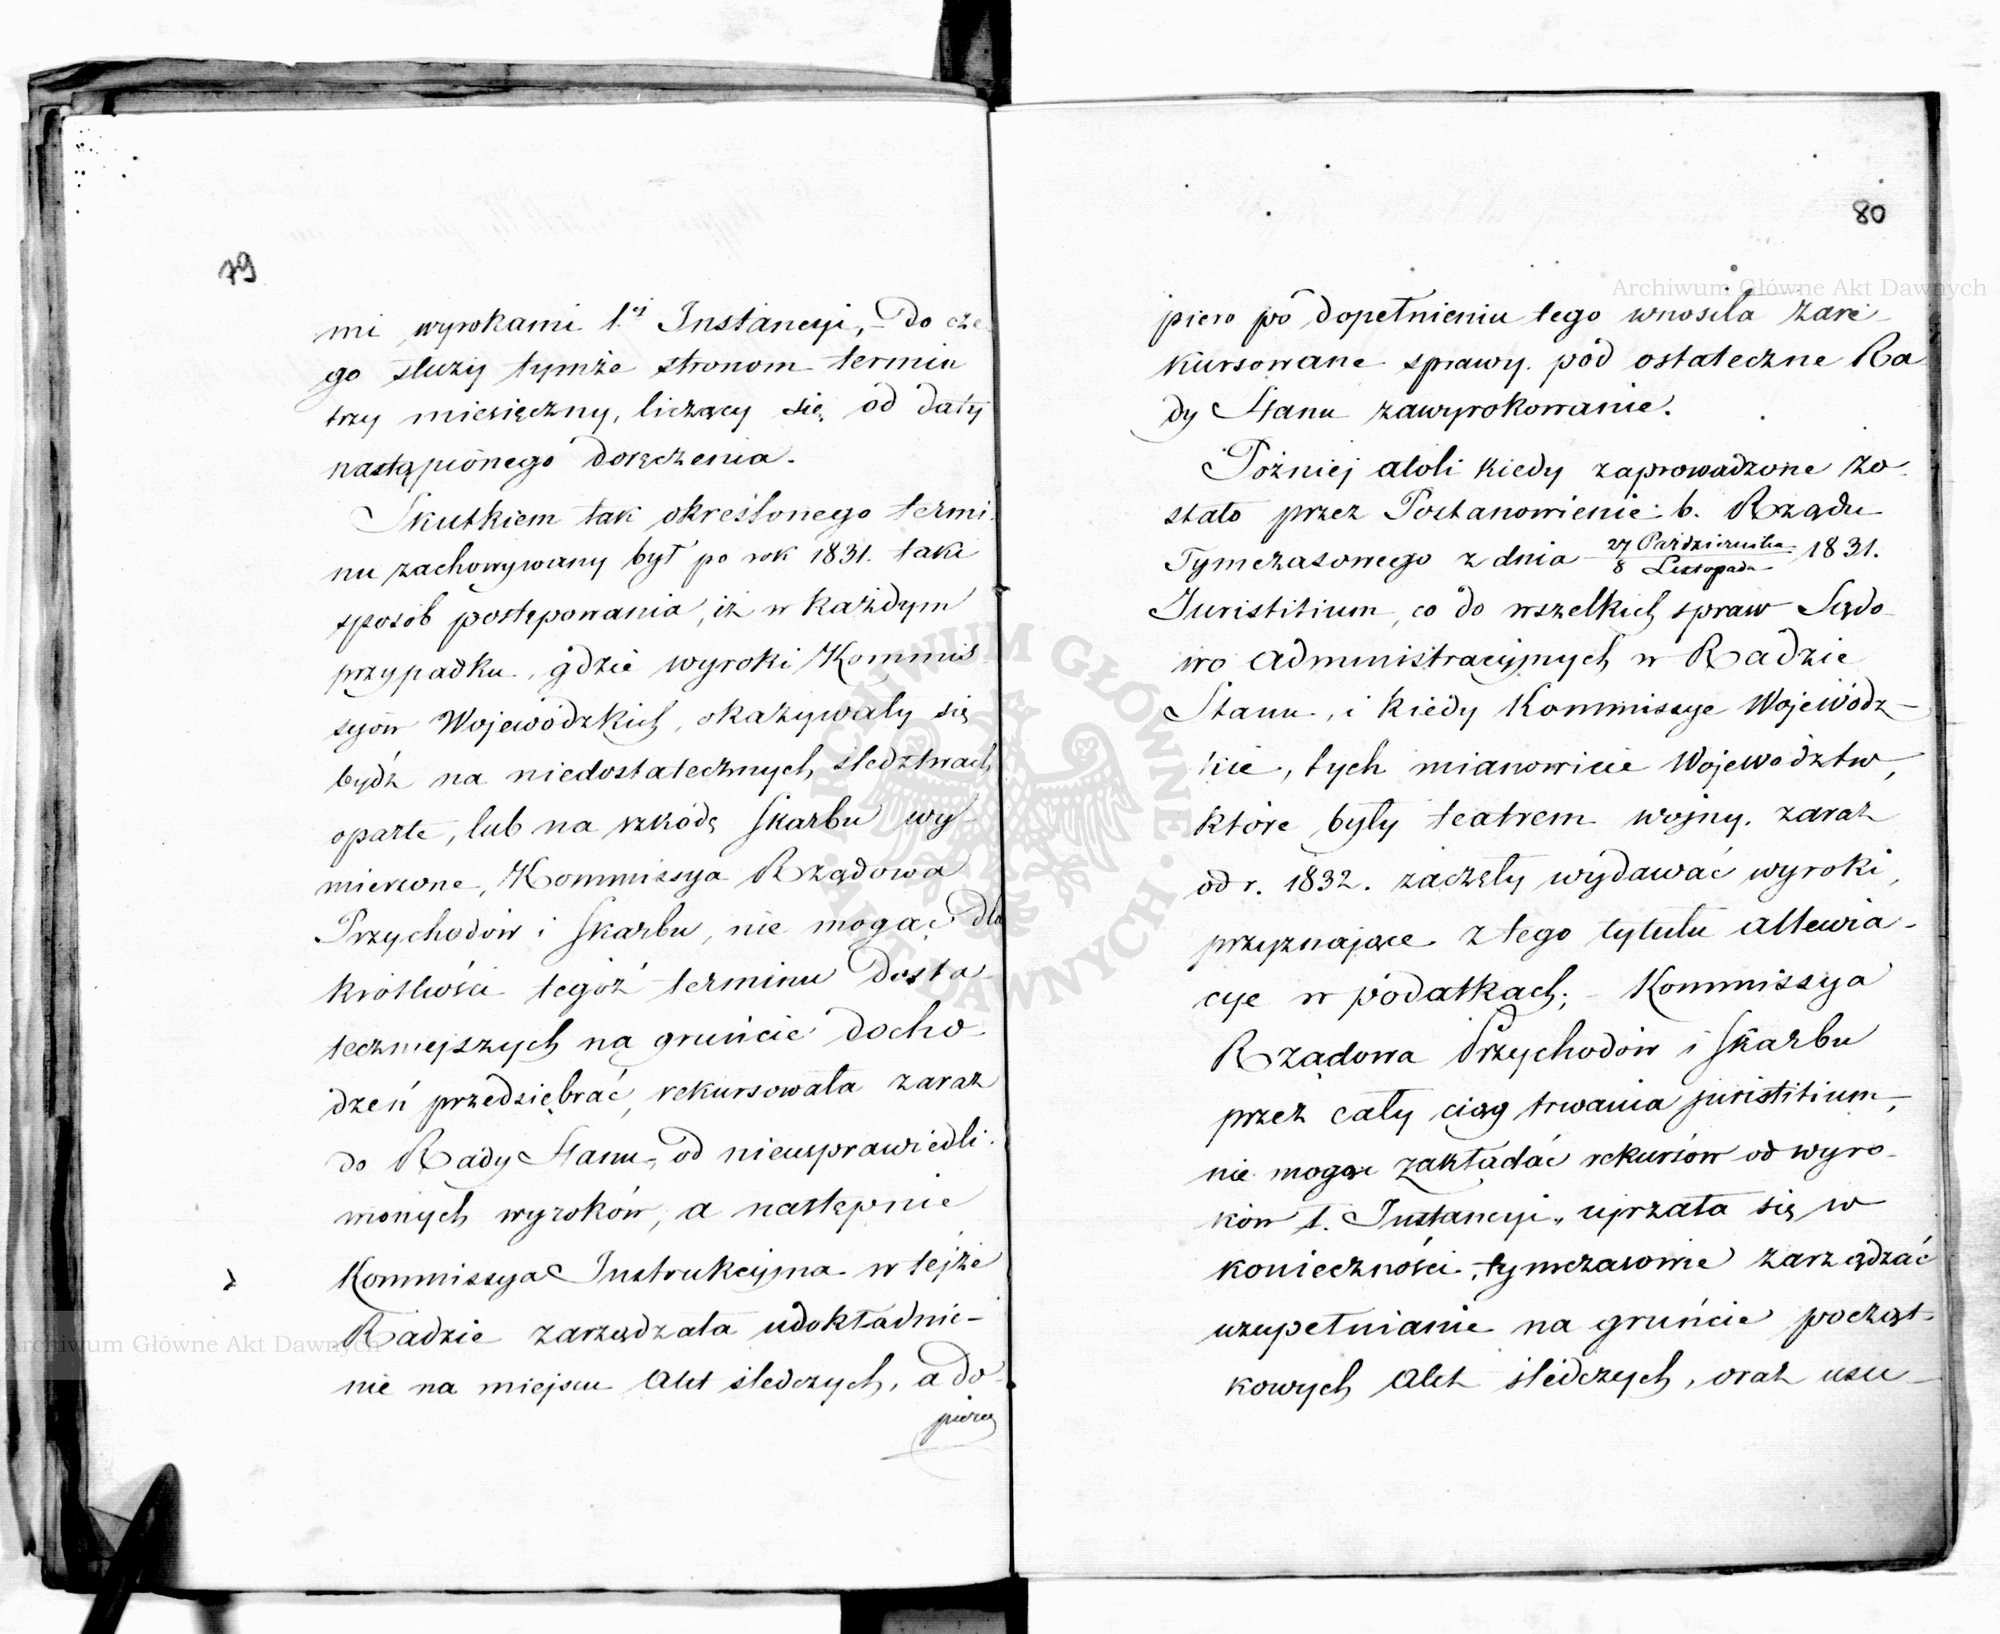 79
mi wyrokami 1.ej Instancyi, – do cze
go służy tymże stronom termin
trzy miesięczny, liczący się od daty
nastąpionego doręczenia.
Skutkiem tak określonego termi-
nu zachowywany był po rok 1831. taki
sposób postępowania, iż w każdym
przypadku, gdzie wyroki Kommis
syów Wojewódzkich, okazywały się
bydź na niedostatecznych śledztwach
oparte, lub na szkodę Skarbu wy
mierzone, Kommissya Rządowa
Przychodów i Skarbu, nie mogąc dla
krótkości tegoż terminu dosta
teczniejszych na gruncie docho-
dzeń przedsiębrać, rekursowała zaraz
do Rady Stanu, od nieusprawiedli-
wionych wyroków, a następnie
Kommissya Instrukcyjna w tejże
Radzie zarządzała udokładnie-
nie na miejscu Akt śledczych, a do-
piero
80
piero po dopełnieniu tego wnosiła zare-
kursowane sprawy pod ostateczne Ra
dy Stanu zawyrokowanie.
Poźniej atoli kiedy zaprowadzone zo-
stało przez Postanowienie b. Rządu
Tymczasowego z dnia 27 Października / 8 Listopada 1831.
Juristitium, co do wszelkich spraw Sądo-
wo Administracyjnych w Radzie
Stanu, i kiedy Kommissye Wojewódz-
kie, tych mianowicie Województw,
które były teatrem wojny, zaraz
od r. 1832. zaczęły wydawać wyroki,
przyznające z tego tytułu allewia-
cye w podatkach; – Kommissya
Rządowa Przychodów i Skarbu
przez cały ciąg trwania juristitium,
nie mogąc zakładać rekursów od wyro-
ków 1. Instancyi, ujrzała się w
konieczności, tymczasowie zarządzać
uzupełnianie na gruncie począt-
kowych Akt śledczych, oraz usu-
Archiwum Główne Akt Dawnych
Archiwum Główne Akt Dawnych
ARCHIWUM GŁÓWNE AKT DAWNYCH